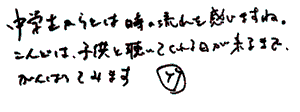 中学生からとは時の流れを感じますね。
こんどは、子供と聴いてくれる日が来るまで、
がんばってみます Y